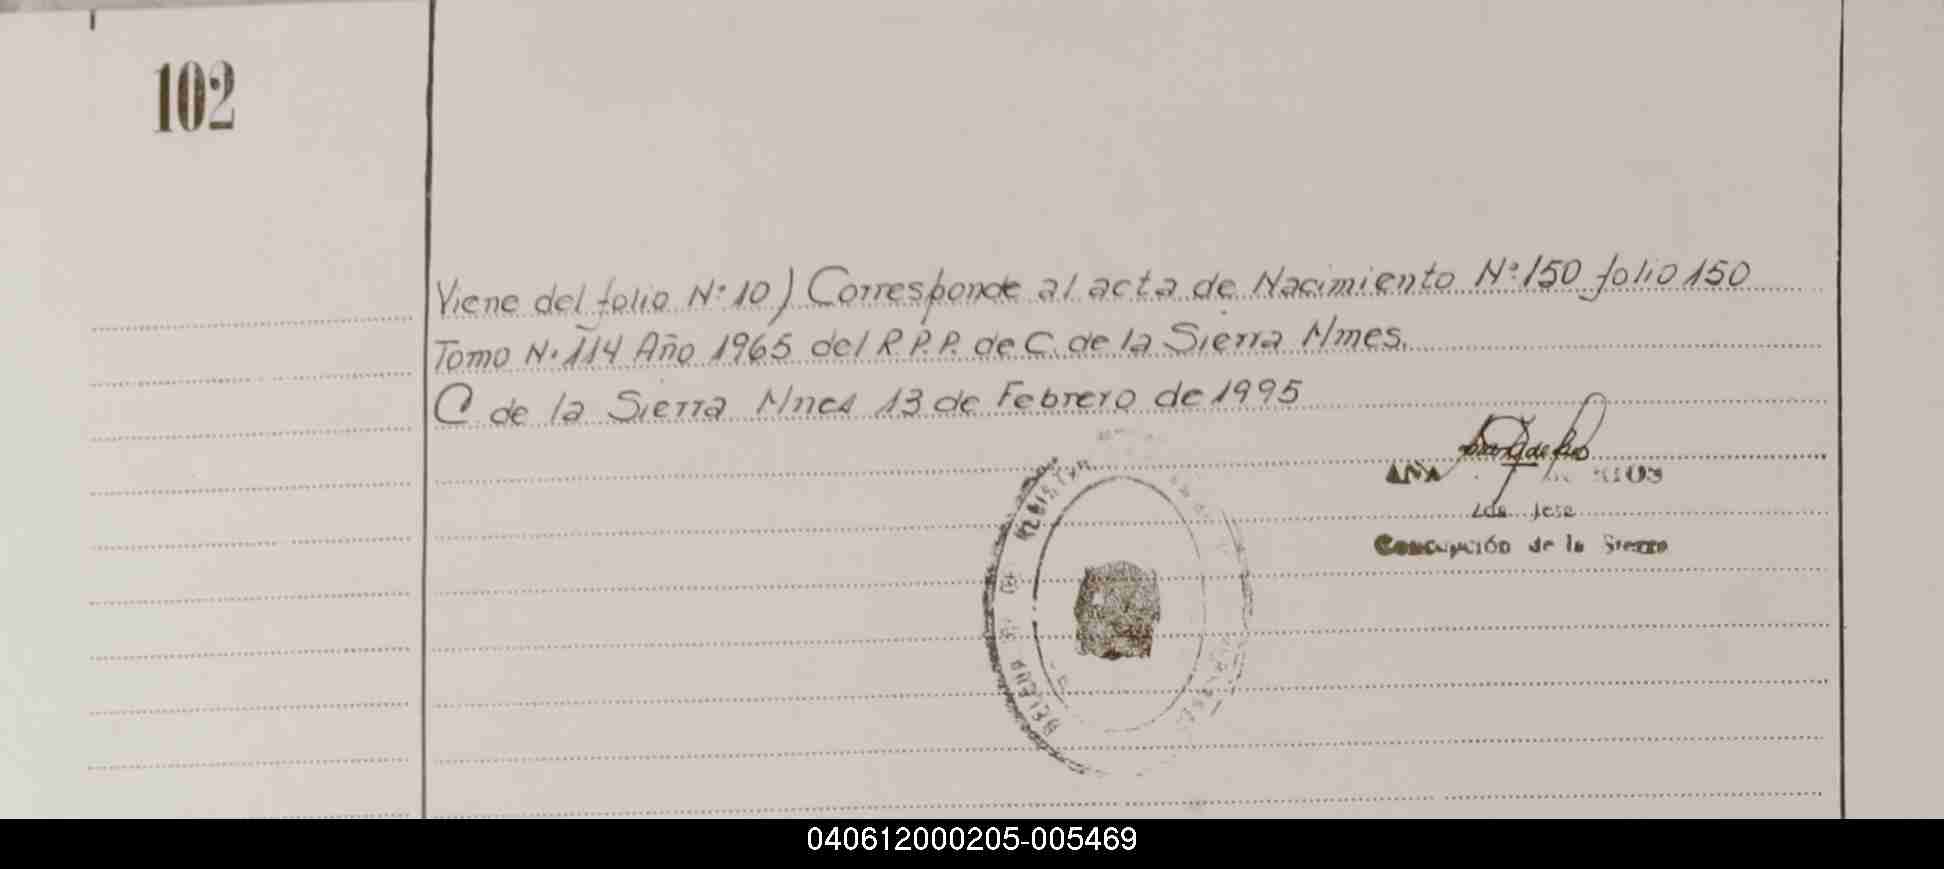 102
Viene del folio N° 10) Corresponde al acta de Nacimiento N° 150 folio 150
Tomo N° 114 Año 1965 del R.P.P. de C. de la Sierra Mnes.
C. de la Sierra Mnes 13 de Febrero de 1995
Concepción de la Sierra
040612000205-005469